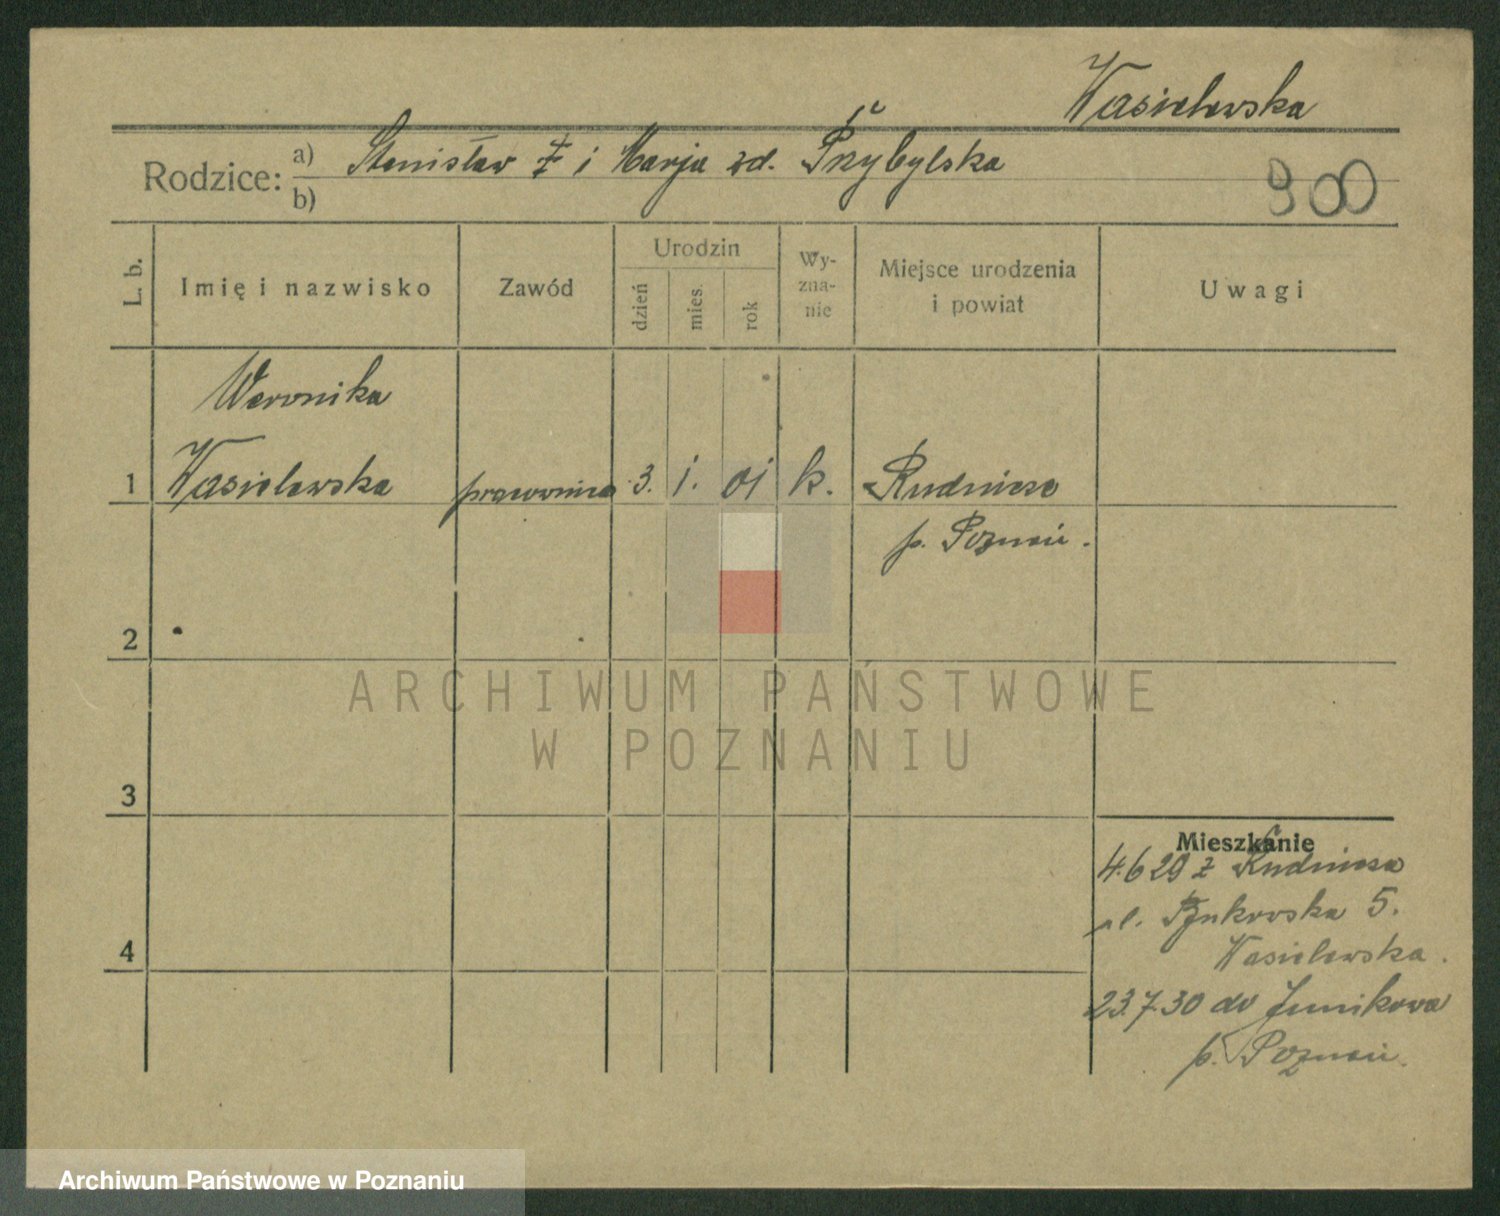 Wasielewska
Rodzice: a) Stanisław ‡ i Marja zd. Przybylska
b)
900
L. b.
Imię i nazwisko
Zawód
Urodzin
dzień
mies.
rok
Wy-
zna-
nie
Miejsce urodzenia
i powiat
Uwagi
Weronika
1 Wasielewska pracownica 3. 1. 01 k. Rudnicze
p. Poznań.
2
3
4
Mieszkanie
4.6 29 z Rudnicza
ul. Bukowska 5.
Wasielewska.
23.7.30 do Junikowa
p. Poznań.
ARCHIWUM PAŃSTWOWE
W POZNANIU
Archiwum Państwowe w Poznaniu